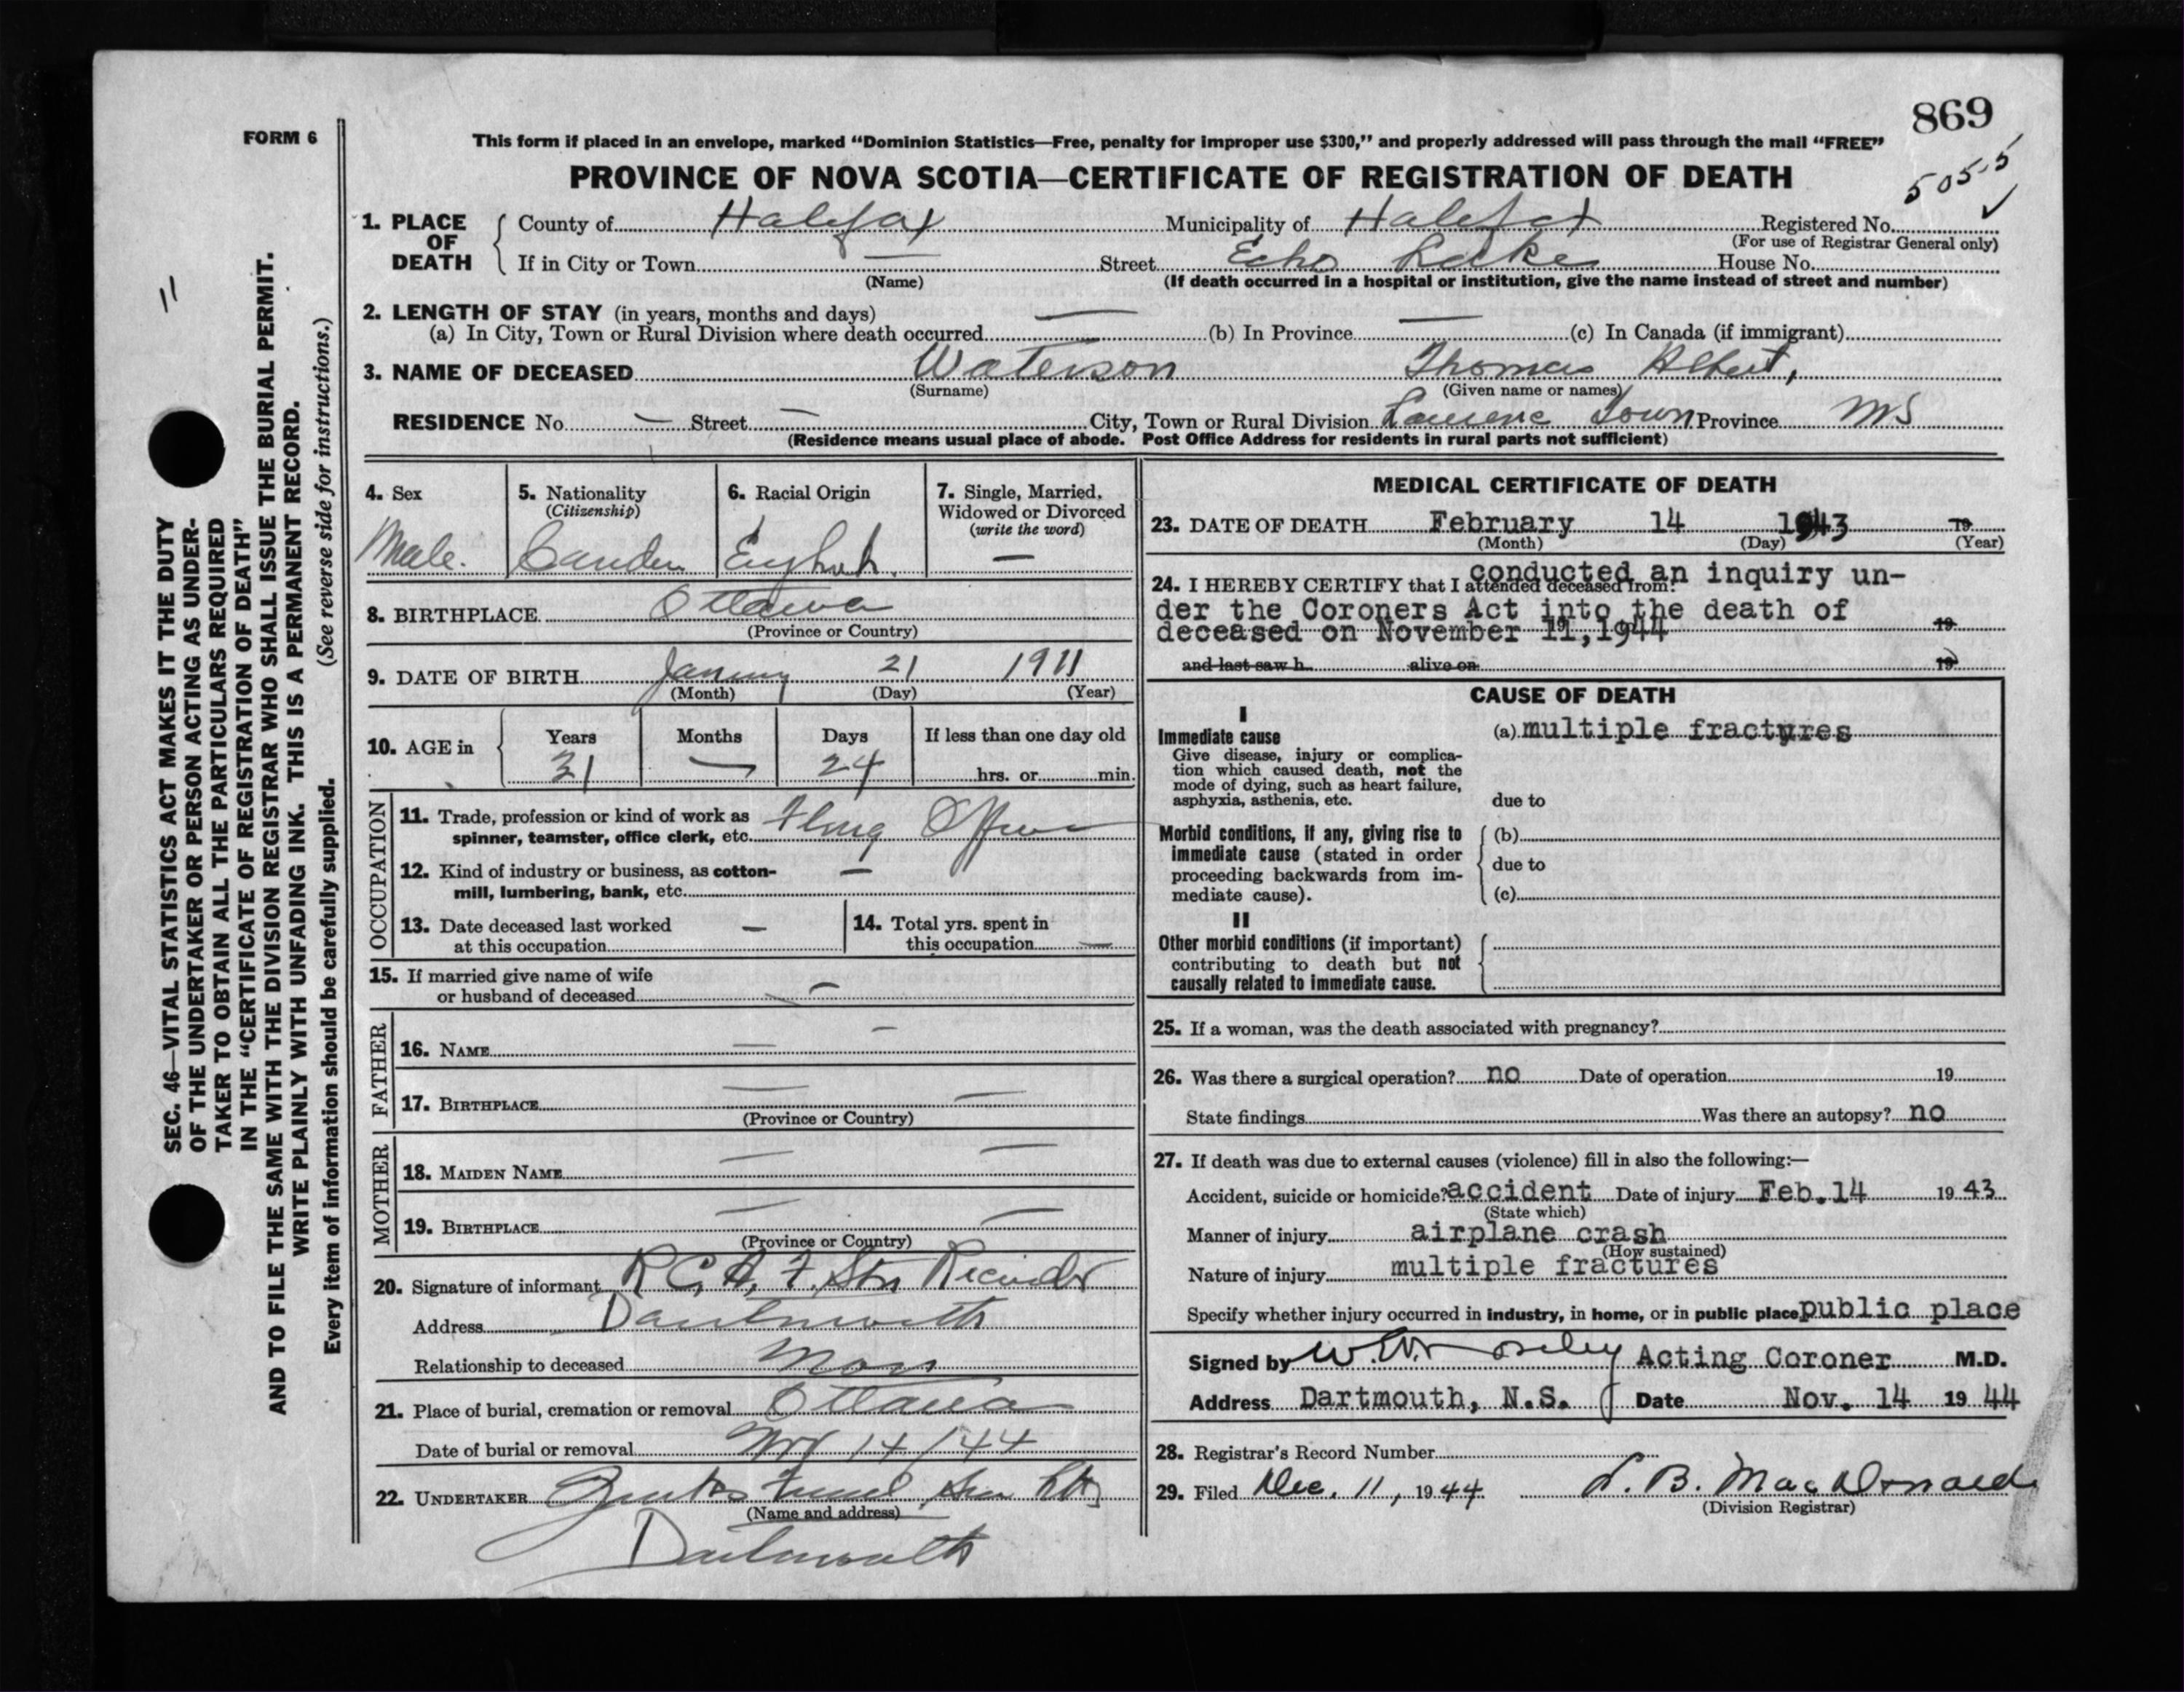 869
5055
FORM 6
This form if placed in an envelope, marked “Dominion Statistics—Free, penalty for improper use $300,” and properly addressed will pass through the mail “FREE”
PROVINCE OF NOVA SCOTIA—CERTIFICATE OF REGISTRATION OF DEATH
1. PLACE OF DEATH County of Halifax Municipality of Halifax Registered No.
(For use of Registrar General only)
If in City or Town — Street Echo Lake House No.
(Name) (If death occurred in a hospital or institution, give the name instead of street and number)
2. LENGTH OF STAY (in years, months and days)
(a) In City, Town or Rural Division where death occurred — (b) In Province — (c) In Canada (if immigrant)
3. NAME OF DECEASED Waterson Thomas Albert,
(Surname) (Given name or names)
RESIDENCE No. — Street — City, Town or Rural Division Town Province NS
(Residence means usual place of abode. Post Office Address for residents in rural parts not sufficient)
4. Sex
Male.
5. Nationality
(Citizenship)
6. Racial Origin
English
7. Single, Married,
Widowed or Divorced
(write the word)
—
8. BIRTHPLACE Ottawa
(Province or Country)
9. DATE OF BIRTH January 21 1911
(Month) (Day) (Year)
10. AGE in Years Months Days If less than one day old
31 — 24 hrs. or min.
OCCUPATION
11. Trade, profession or kind of work as
spinner, teamster, office clerk, etc. Flying Officer
12. Kind of industry or business, as cotton-
mill, lumbering, bank, etc. —
13. Date deceased last worked
at this occupation —
14. Total yrs. spent in
this occupation —
15. If married give name of wife
or husband of deceased —
FATHER
16. NAME — —
17. BIRTHPLACE — —
(Province or Country)
MOTHER
18. MAIDEN NAME — —
19. BIRTHPLACE — —
(Province or Country)
20. Signature of informant R.C.A.F. Stn Records
Address Dartmouth
Relationship to deceased
21. Place of burial, cremation or removal Ottawa
Date of burial or removal Nov 14/44
22. UNDERTAKER
(Name and address)
Dartmouth
MEDICAL CERTIFICATE OF DEATH
23. DATE OF DEATH February 14 1943 19
(Month) (Day) (Year)
24. I HEREBY CERTIFY that I attended deceased from:
conducted an inquiry un-
der the Coroners Act into the death of
deceased on November 11, 1944 19
and last saw h alive on 19
CAUSE OF DEATH
I
Immediate cause
Give disease, injury or complica-
tion which caused death, not the
mode of dying, such as heart failure,
asphyxia, asthenia, etc.
(a) multiple fractures
due to
Morbid conditions, if any, giving rise to
immediate cause (stated in order
proceeding backwards from im-
mediate cause).
(b)
due to
(c)
II
Other morbid conditions (if important)
contributing to death but not
causally related to immediate cause.
25. If a woman, was the death associated with pregnancy?
26. Was there a surgical operation? no Date of operation 19
State findings Was there an autopsy? no
27. If death was due to external causes (violence) fill in also the following:—
Accident, suicide or homicide? accident Date of injury Feb. 14 19 43
(State which)
Manner of injury airplane crash
(How sustained)
Nature of injury multiple fractures
Specify whether injury occurred in industry, in home, or in public place public place
Signed by Acting Coroner M.D.
Address Dartmouth, N.S. Date Nov. 14 19 44
28. Registrar's Record Number
29. Filed Dec. 11, 1944 L. B. MacDonald
(Division Registrar)
11
SEC. 46—VITAL STATISTICS ACT MAKES IT THE DUTY
OF THE UNDERTAKER OR PERSON ACTING AS UNDER-
TAKER TO OBTAIN ALL THE PARTICULARS REQUIRED
IN THE “CERTIFICATE OF REGISTRATION OF DEATH”
AND TO FILE THE SAME WITH THE DIVISION REGISTRAR WHO SHALL ISSUE THE BURIAL PERMIT.
WRITE PLAINLY WITH UNFADING INK. THIS IS A PERMANENT RECORD.
(See reverse side for instructions.)
Every item of information should be carefully supplied.